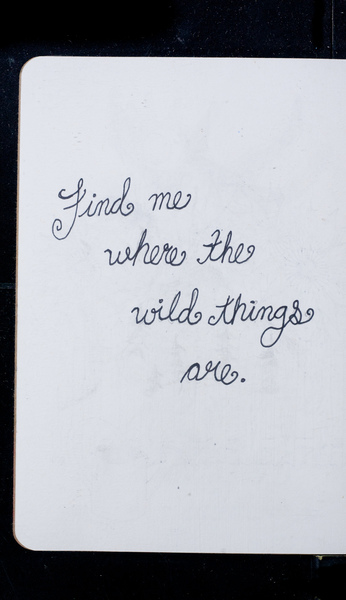 Find me
where the
wild things
are.